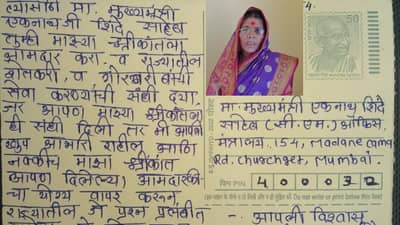 त्यासाठी मा. मुख्यमंत्री
एकनाथजी शिंदे साहेब
तुम्ही माझ्या चंद्रकांतला
आमदार करा व राज्यातील
शेतकरी, व गोरगरीबांची
सेवा करण्याची संधी द्या.
जर आपण माझ्या
ही संधी दिली तर मी आपली
खुप आभारी राहील आणि
नक्कीच माझा
आपण दिलेल्या आमदारकी-
चा योग्य वापर करून
राज्यातील जे प्रश्न प्रलंबीत
4.
50
मा. मुख्यमंत्री एकनाथ शिंदे
साहेब (सी.एम.) ऑफिस,
मंत्रालय, 154, Madame cama
Rd, Churchgeet, Mumbai.
पिन PIN
400032
आपली विश्वासू